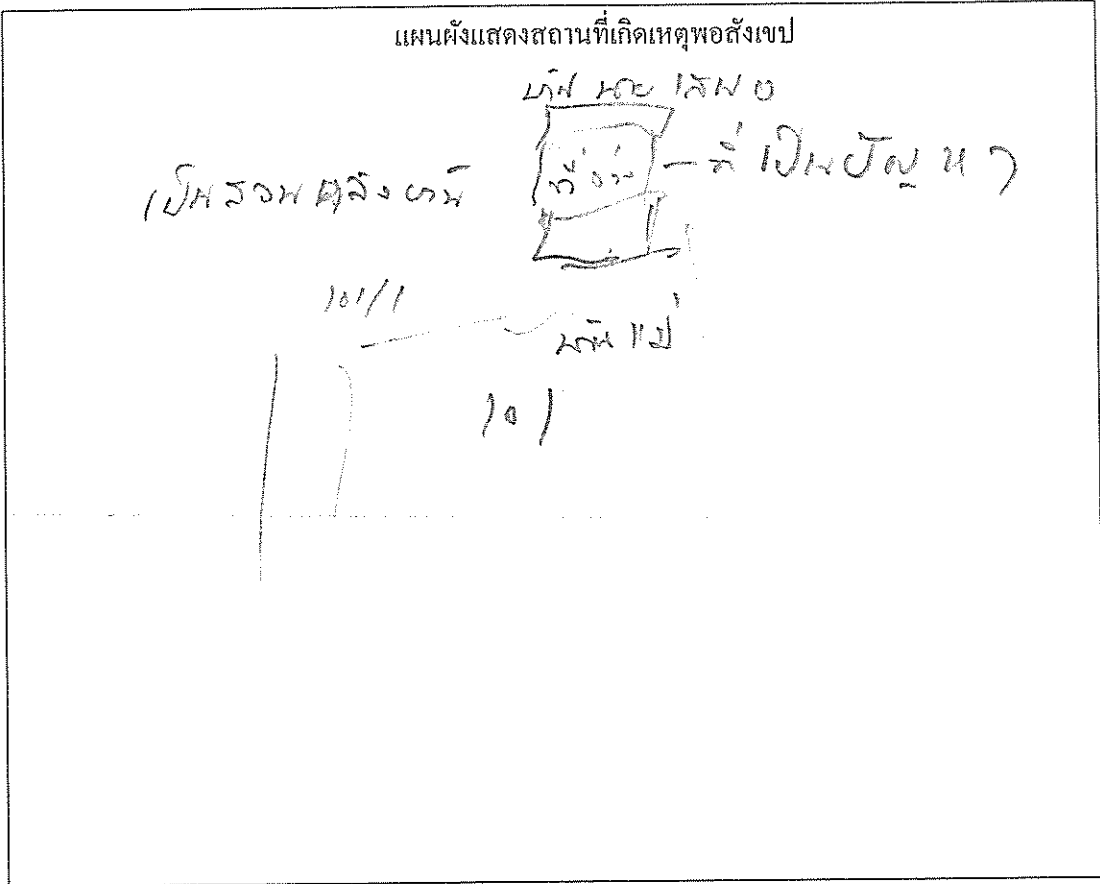 แผนผังแสดงสถานที่เกิดเหตุพอสังเขป
บ้าน นาย เสนอ
เป็นสวนหลังบ้าน
ที่ว่าง
ที่เป็นปัญหา
101/1
บ้านแม่
101